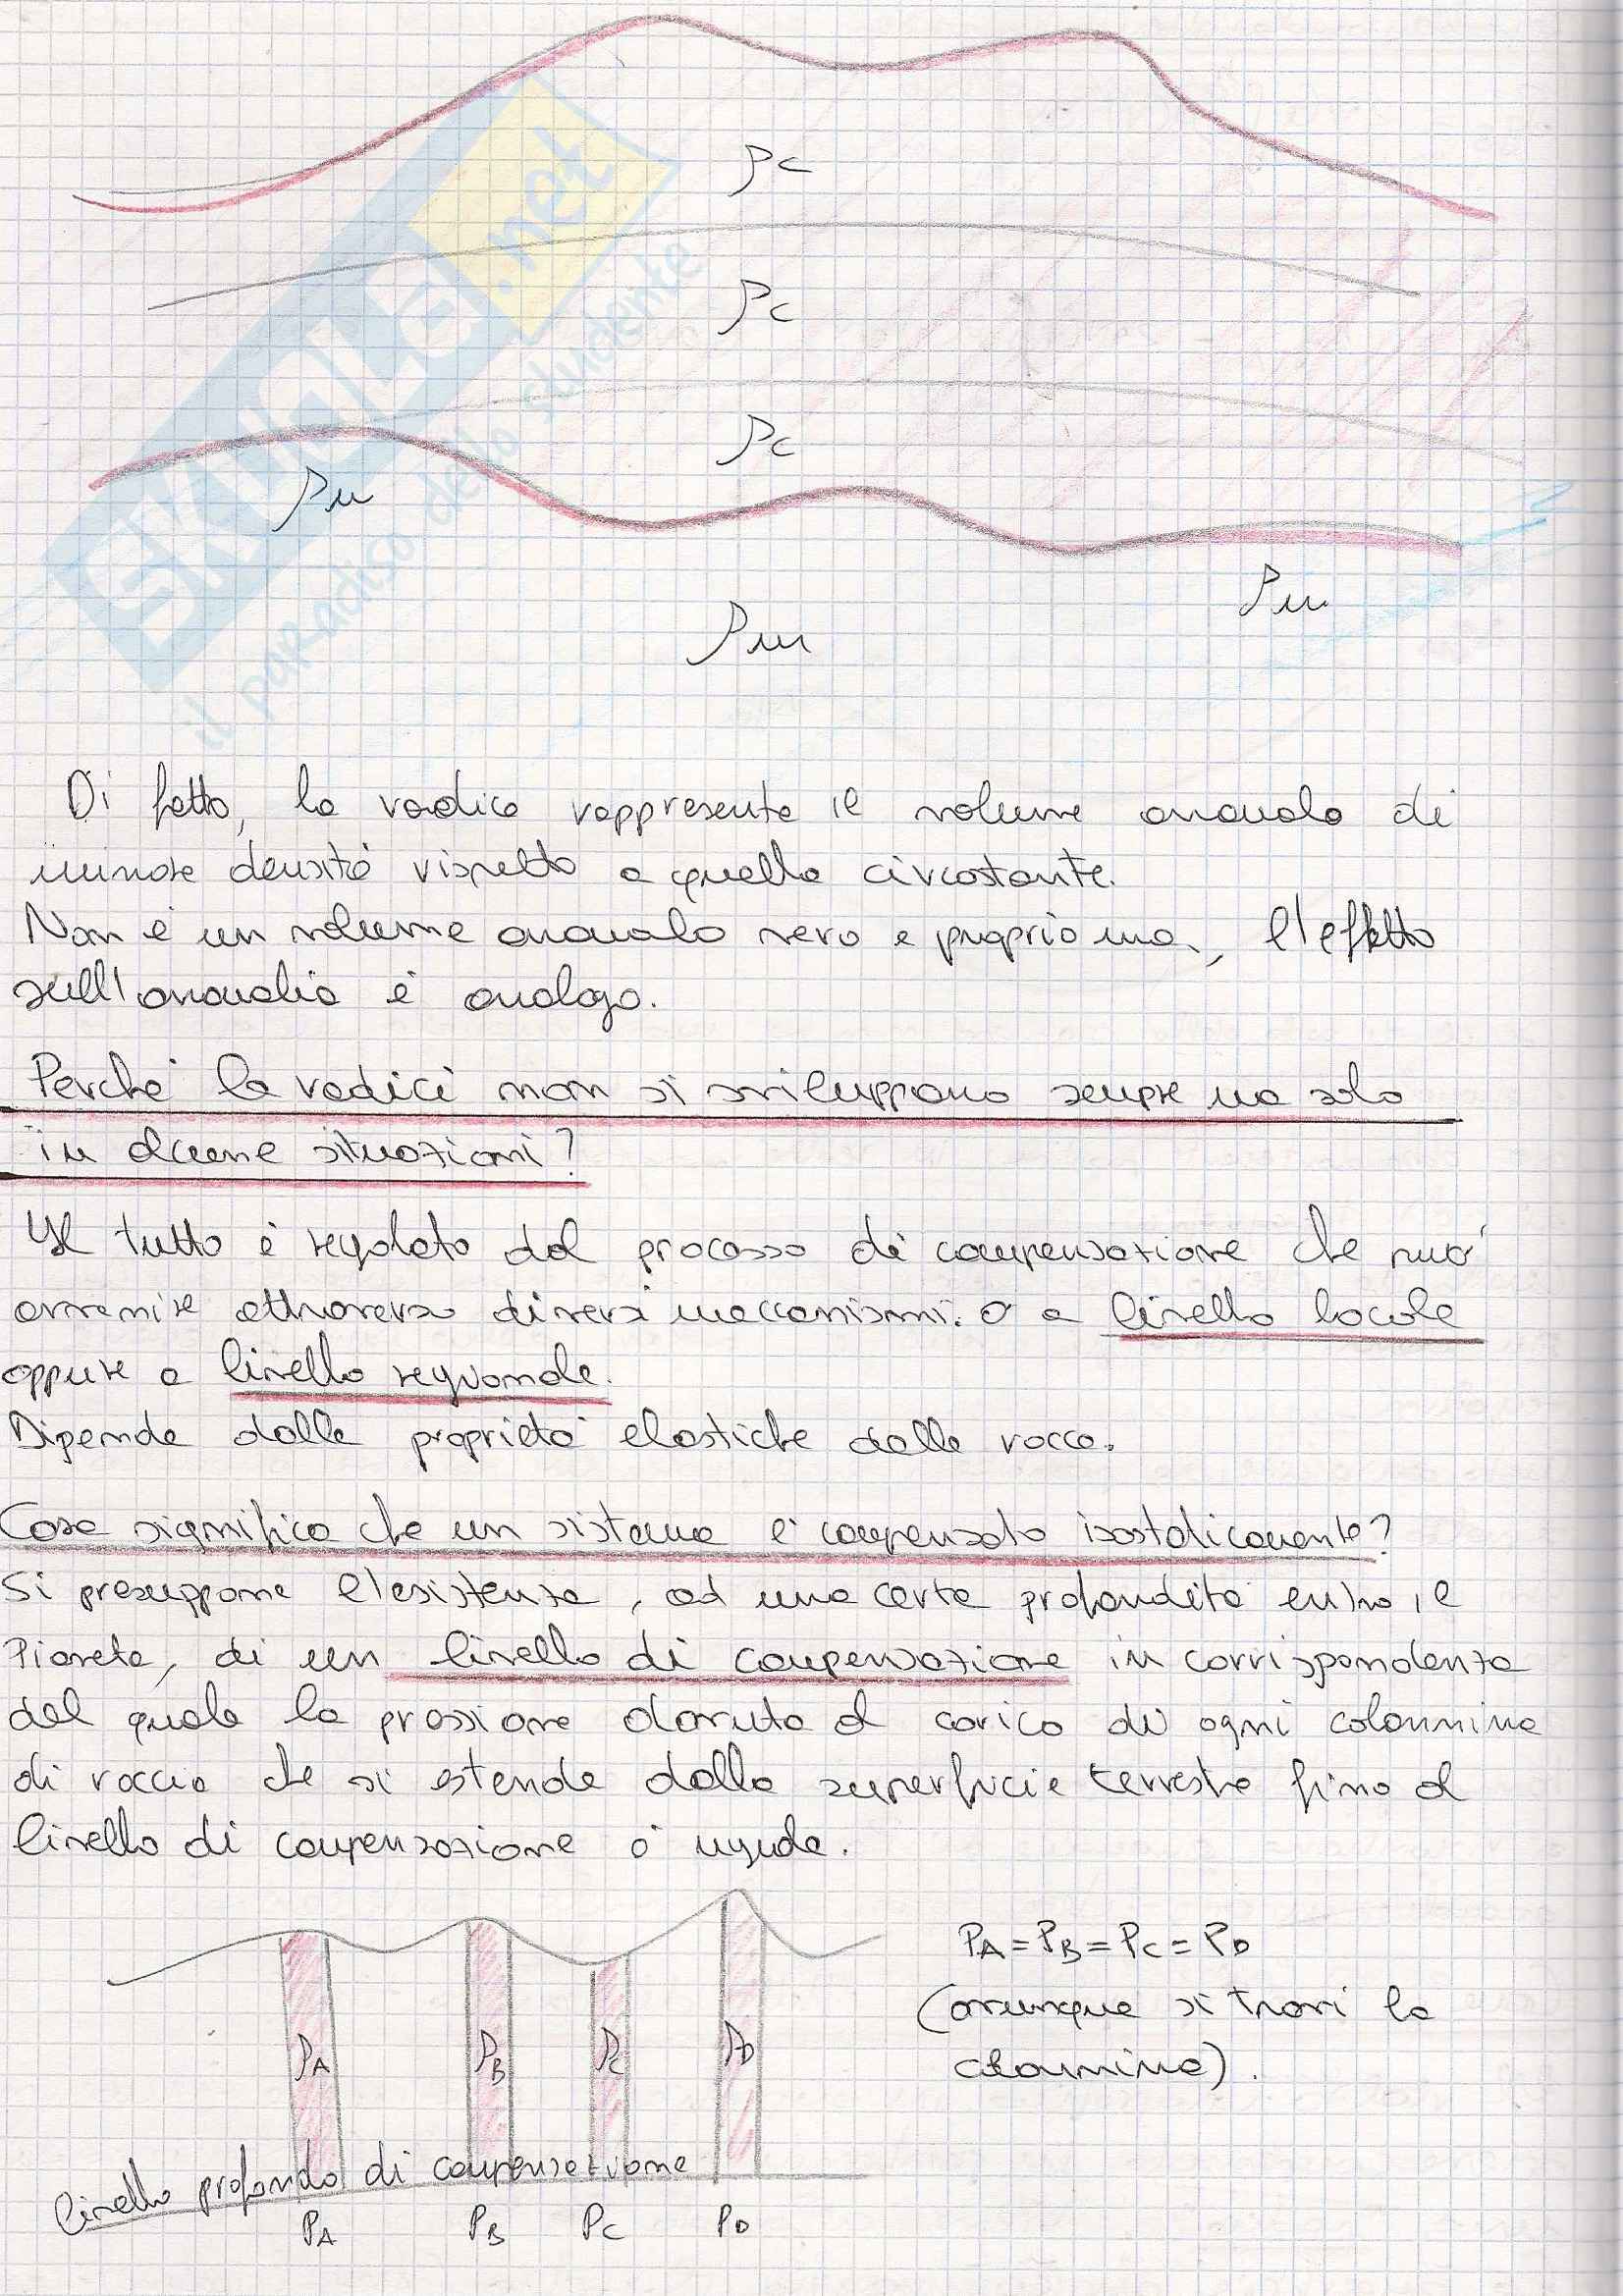 ρc
ρc
ρc
ρm
ρm
ρm
SKUOLA.net
il paradiso dello studente
Di fatto, la radice rappresenta il volume anomalo di
minore densità rispetto a quella circostante.
Non è un volume anomalo vero e proprio ma, l'effetto
sull'anomalia è analogo.
Perché le radici non si sviluppano sempre ma solo
in alcune situazioni?
Il tutto è regolato dal processo di compensazione che può
avvenire attraverso diversi meccanismi: o a livello locale
oppure a livello regionale.
Dipende dalle proprietà elastiche delle rocce.
Cosa significa che un sistema è compensato isostaticamente?
Si presuppone l'esistenza, ad una certa profondità entro il
Pianeta, di un livello di compensazione in corrispondenza
del quale la pressione dovuta al carico di ogni colonnina
di roccia che si estende dalla superficie terrestre fino al
livello di compensazione è uguale.
PA=PB=PC=PD
(ovunque si trovi la
colonnina).
ρA ρB ρC ρD
livello profondo di compensazione
PA PB PC PD